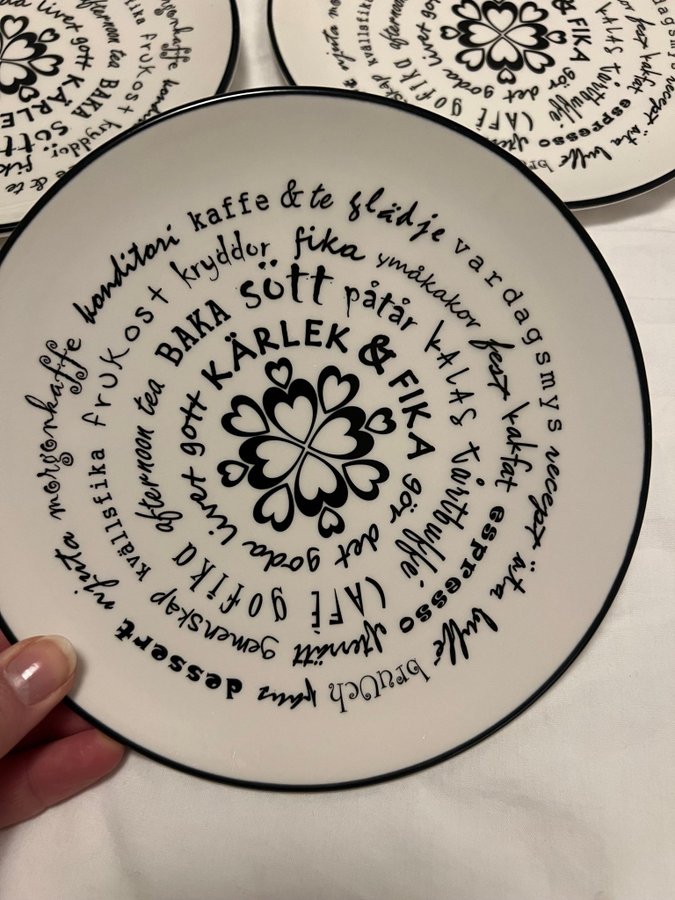 KÄRLEK & FIKA gör det goda livet gott
BAKA sött påtår KALAS tårtbuffé CAFÉ gofika afternoon tea
frukost kryddor fika småkakor fest kakfat espresso efterrätt gemenskap kvällsfika
konditori kaffe & te glädje vardagsmys recept äta buffé brunch paus dessert njuta morgonkaffe
livet gott KÄRLE
afternoon tea BAKA SÖTT
kvällsfika frukost kryddor
morgonkaffe
& FIKA gör det goda livet gott
KALAS tårtbuffé CAFÉ gofika
fest kakfat espresso
vardagsmys recept äta buffé